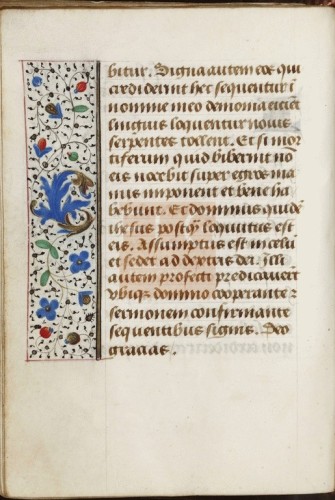 bitur. Signa autem eos qui
crediderint hec sequentur i
nomine meo demonia eicient
linguis loquentur nouis
serpentes tollent. Et si mor
tiferum quid biberint no
eis nocebit super egros ma
nus imponent et bene ha
bebunt. Et dominus quidē
ihesus postq̄ loquutus est
eis. Assumptus est in celū
et sedet ad dextris dei. Illi
autem profecti predicauert
vbiq̄ domino cooperante ⁊
sermonem confirmante
sequentibus signis. Deo
gracias.